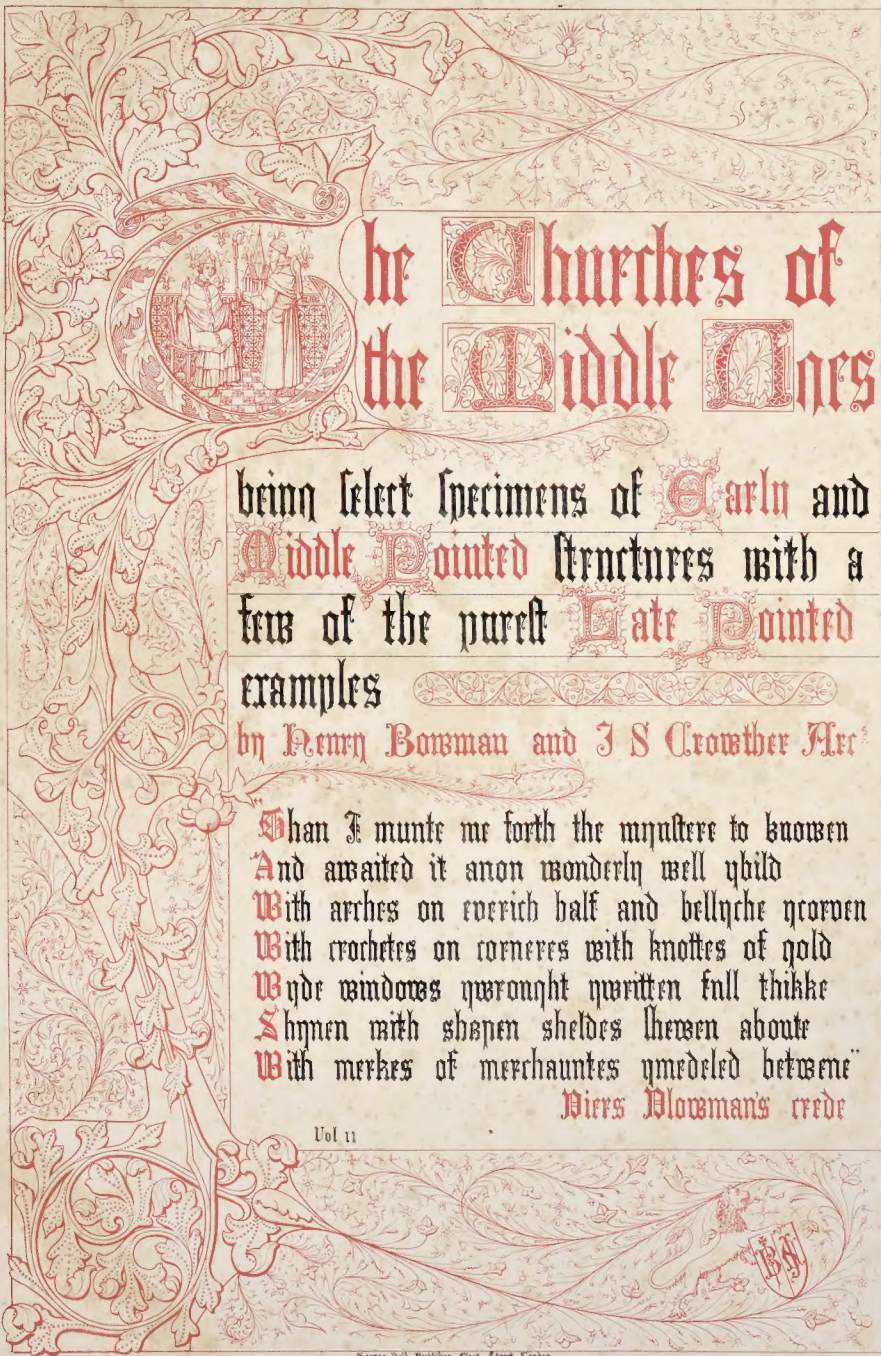 The Churches of
the Middle Ages
being select specimens of Early and
Middle Pointed structures with a
few of the purest Late Pointed
examples
by Henry Bowman and J S Crowther Arcts
"Than I munte me forth the mynstere to knowen
And awaited it anon wonderly well ybild
With arches on everich half and bellyche ycorven
With crochetes on corneres with knottes of gold
Wyde windows ywrought ywritten full thikke
Shynen with shapen sheldes shewen aboute
With merkes of merchauntes ymedeled betwene"
Piers Plowman's crede
Vol II
George Bell, Publisher, Fleet Street, London